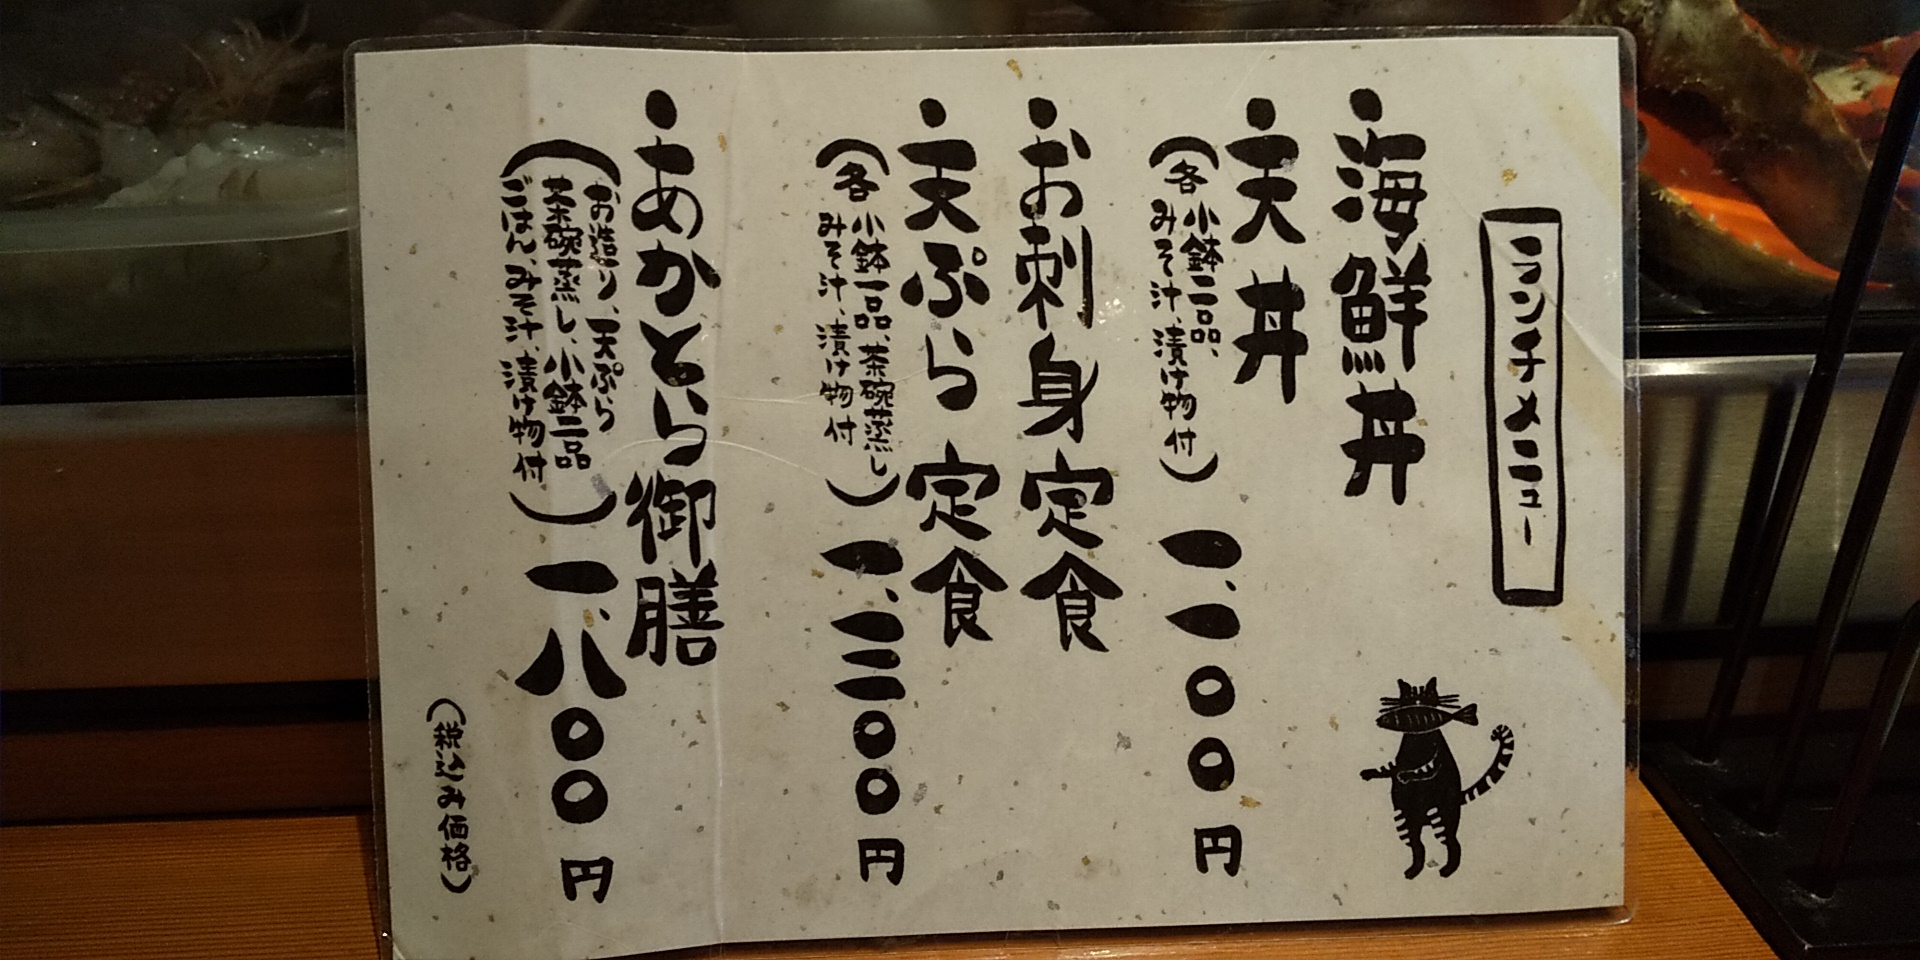 ランチメニュー
・海鮮丼
・天丼
(各 小鉢二品、
みそ汁、漬け物付)
一、一〇〇円
・お刺身定食
・天ぷら定食
(各 小鉢一品、茶碗蒸し
みそ汁、漬け物付)
一、三〇〇円
・あかとら御膳
(お造り、天ぷら
茶碗蒸し、小鉢二品
ごはん、みそ汁、漬け物付)
一、八〇〇円
(税込み価格)